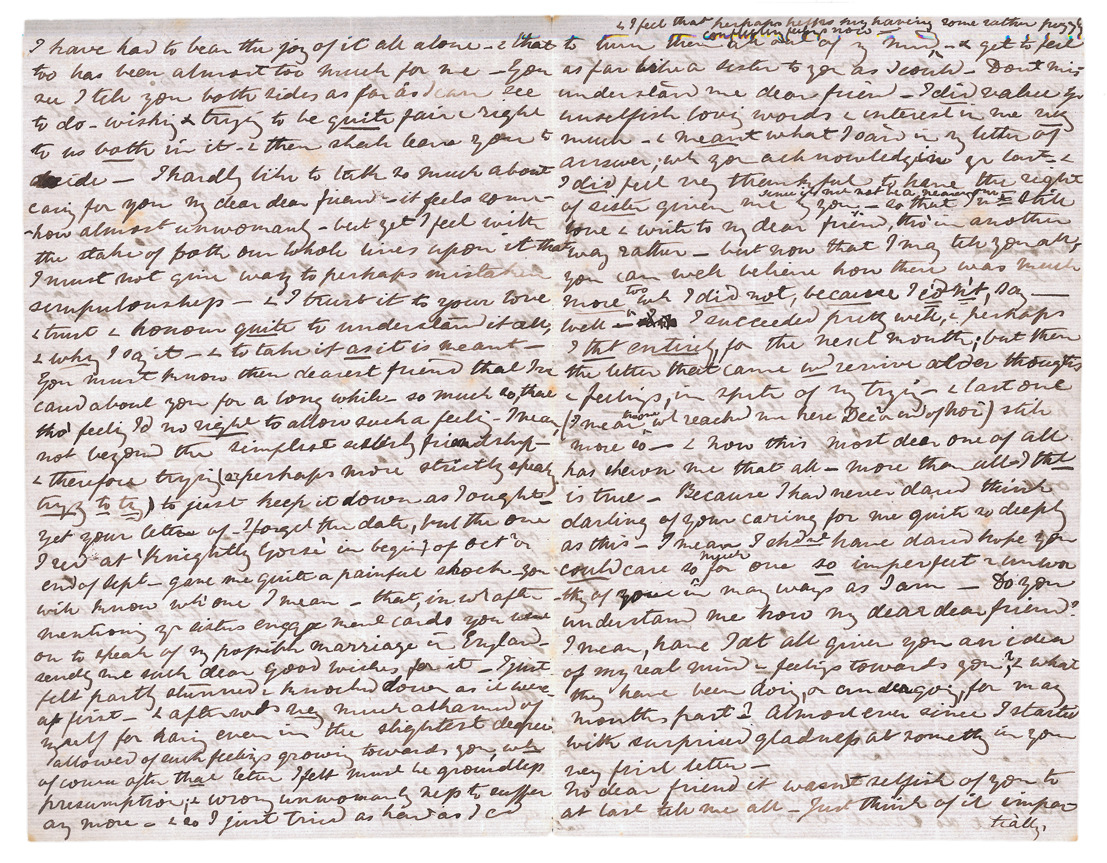 I have had to bear the joy of it all alone - & that
too has been almost too much for me - You
see I tell you both sides as far as I can see
to do - wishing & trying to be quite fair & right
to us both in it - & then shall leave you to
decide - I hardly like to talk so much about
caring for you my dear dear friend - it feels some-
-how almost unwomanly - but yet I feel with
the stake of both our whole lives upon it that
I must not give way to perhaps mistaken
scrupulousness - & I trust it to your love
& trust & honour quite to understand it all,
& why I say it - & to take it as it is meant -
You must know then dearest friend that I've
cared about you for a long while - so much so, that
tho' feeling I'd no right to allow such a feeling - I mean,
not beyond the simplest sisterly friendship -
& therefore trying (or perhaps more strictly speakg
trying to try) to just keep it down as I ought -
yet your letter of - I forget the date, but the one
I recd at 'Knightly Gorse' in beging of Octr or
end of Sept - gave me quite a painful shock - you
will know whh one I mean - that, in wh after
mentiong yr sisters engagement cards you went
on to speak of my possible marriage in England
sendg me such dear good wishes for it - I just
felt partly stunned & knocked down as it were
at first - & afterwds very much ashamed of
myself for havg even in the slightest degree
allowed of such feelings growing towards you, wh
of course after that letter I felt must be groundless
presumption, & wrong unwomanly ness to suffer
any more - & so I just tried as hard as I cd
& I feel that perhaps helps my having some rather puzzlg
conflicting feelings now -
to turn them all out of my mind - & get to feel
as far like a sister to you as I could - Don't mis
understand me dear friend - I did value yr
unselfish loving words & interest in me very
much - & meant what I said in my letter of
answer, wh you acknowledge in yr last - &
I did feel very thankful to have the right
of sister given me by you - so that I might still
love & write to my dear friend, tho' in another
way rather - but now that I may tell you all,
you can well believe how there was much
more too wh I did not, because I cdn't, say -
well - I succeeded pretty well, & perhaps
I thot entirely, for the next month; but then
the letter that came wd revive older thoughts
& feelings, in spite of my trying - & last one
(I mean the one wh reached me here Decr 2nd of Nov) still
more so - & now this most dear one of all
has shewn me that all - more than all I thot
is true - Because I had never dared think
darling of your caring for me quite so deeply
as this - I mean I shdnt have dared hope you
could care so much for one so imperfect & unwor
thy of you in many ways as I am - Do you
understand me now my dear dear friend?
I mean, have I at all given you an idea
of my real mind & feelings towards you, & what
they have been doing, or undergoing, for many
months past? Almost ever since I started
with surprised gladness at somethg in your
very first letter -
No dear friend it wasn't selfish of you to
at last tell me all - Just think of it impar
tially,